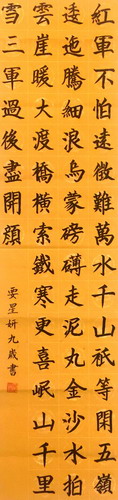 紅軍不怕遠徵難萬水千山祇等閑五嶺
逶迤騰細浪烏蒙磅礴走泥丸金沙水拍
雲崖暖大渡橋橫索鐵寒更喜岷山千里
雪三軍過後盡開顏
星妍九歲書